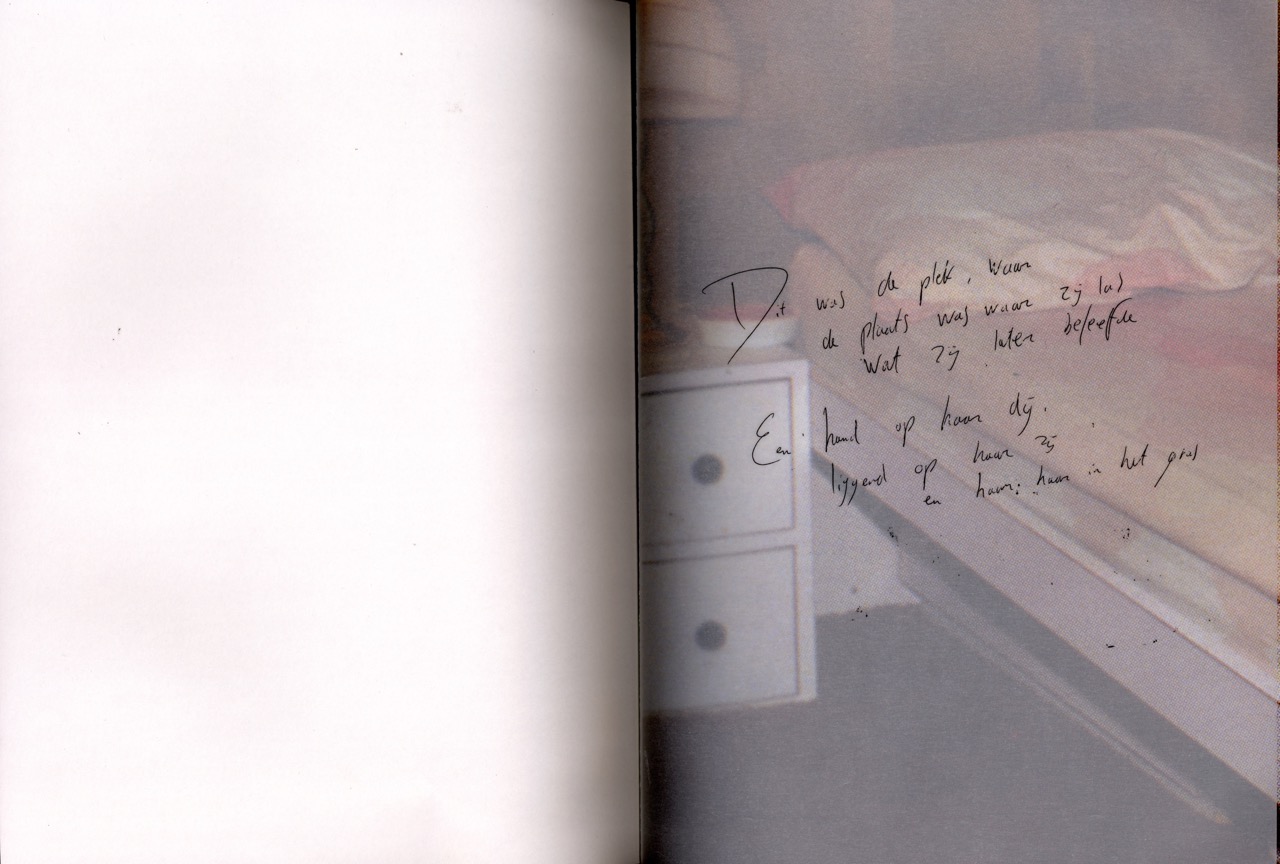 Dit was de plek, waar
de plaats was waar zij las
wat zij later beleefde
Een hand op haar dij.
liggend op haar zij
en haar haar in het gras